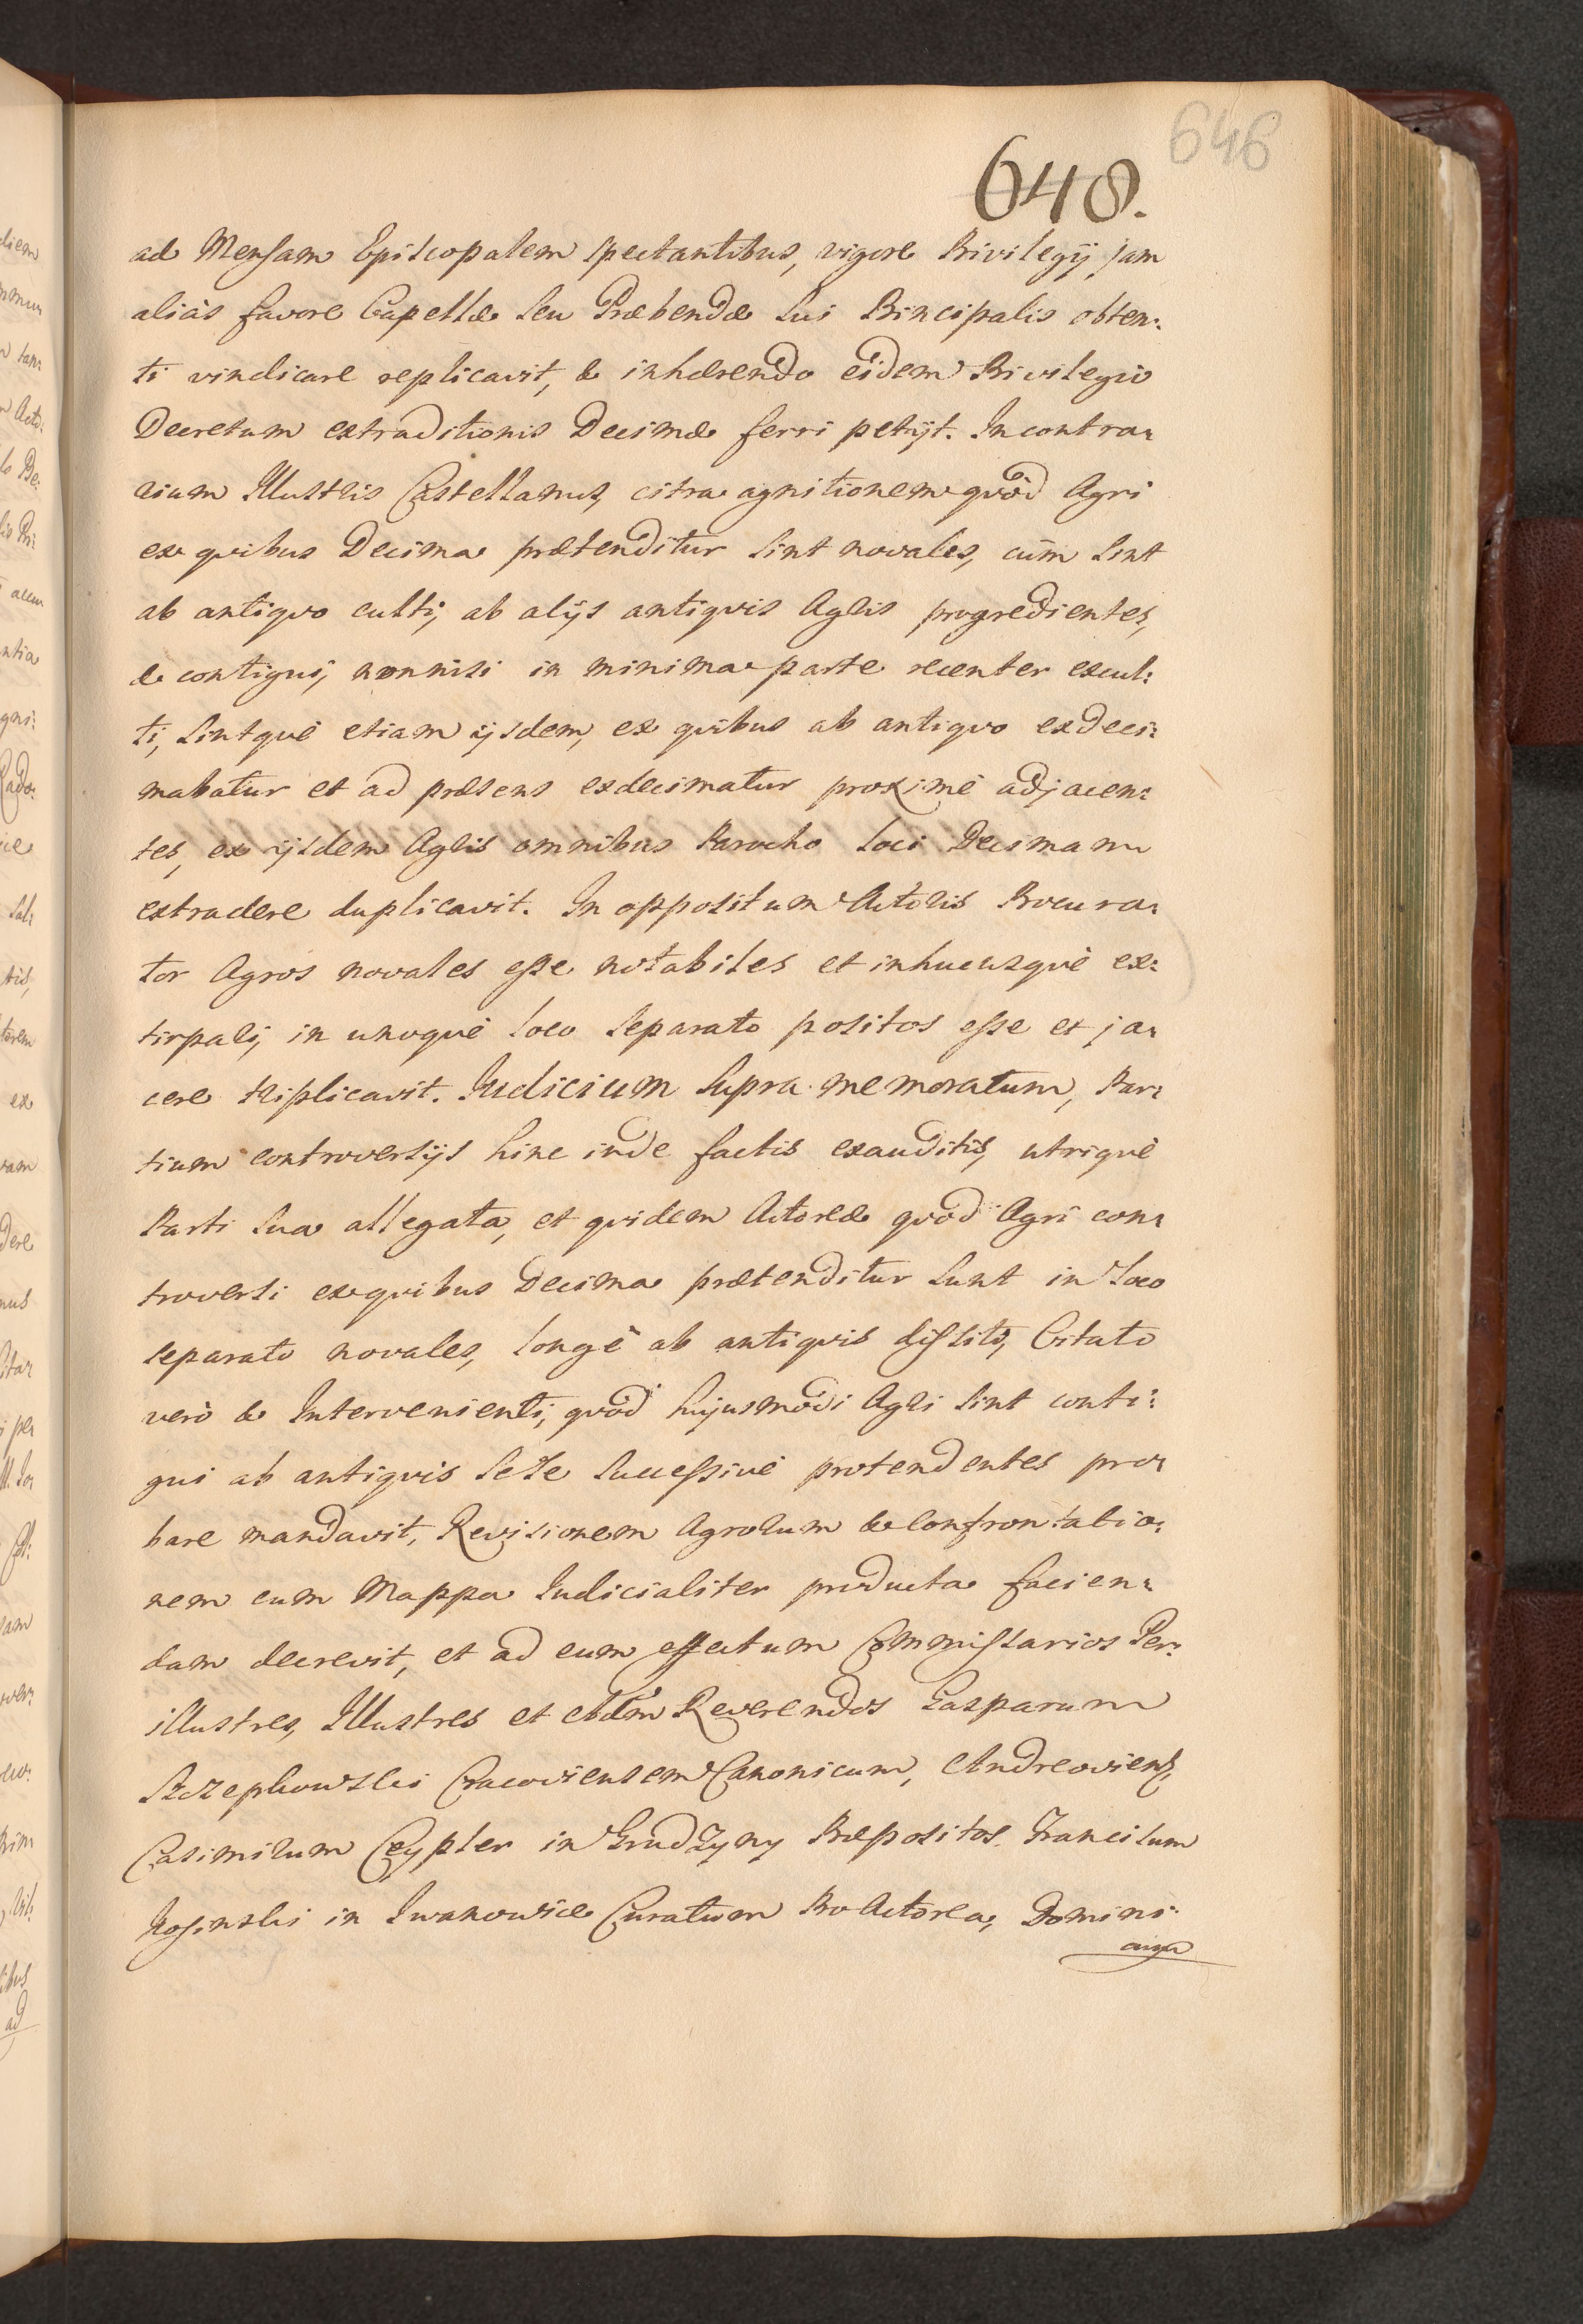 646
648.
ad Mensam Episcopalem spectantibus, vigore Privilegij jam
aliàs favore Capellæ seu Præbendæ sui Principalis obten:
ti vindicare replicavit, & inhærendo eidem Privilegio
Decretum extraditionis Decimæ ferri petijt. In contra:
rium Illustris Castellanus, citra agnitionem quòd Agri
ex quibus Decima prætenditur sint novales, cùm sint
ab antiquo culti, ab alijs antiquis Agris progredientes,
& contigui, nonnisi in minima parte recenter excul:
ti, sintquè etiam ijsdem, ex quibus ab antiquo exdeci:
mabatur et ad præsens exdecimatur proximè adjacen:
tes, ex ijsdem Agris omnibus Parocho loci Decimam
extradere duplicavit. In oppositum Actoris Procura:
tor Agros novales esse notabiles et inhucusquè ex:
tirpari, in unoquè loco separato positos esse et ja:
cere triplicavit. Judicium supra memoratum, Par:
tium controversijs hinc inde factis exauditis, utriquè
Parti sua allegata, et quidem Actoreæ quòd Agri con:
troversi ex quibus Decima prætenditur sunt in loco
separato novales, longè ab antiquis dissito, Citato
verò & Intervenienti, quòd hujusmodi Agri sint conti:
gui ab antiquis sese successivè protendentes pro:
bare mandavit, Revisionem Agrorum & Confrontatio:
nem cum Mappa Judicialiter producta facien:
dam decrevit, et ad eum effectum Commissarios Per:
illustres, Illustres et Adm Reverendos Gasparum
Szczepkowski Cracoviensem Canonicum, Andreoviens,
Casimirum Ceypler in Grudzyny Præpositos. Franciscum
Kosinski in Iwanowice Curatum Pro Actorea, Domini
cum